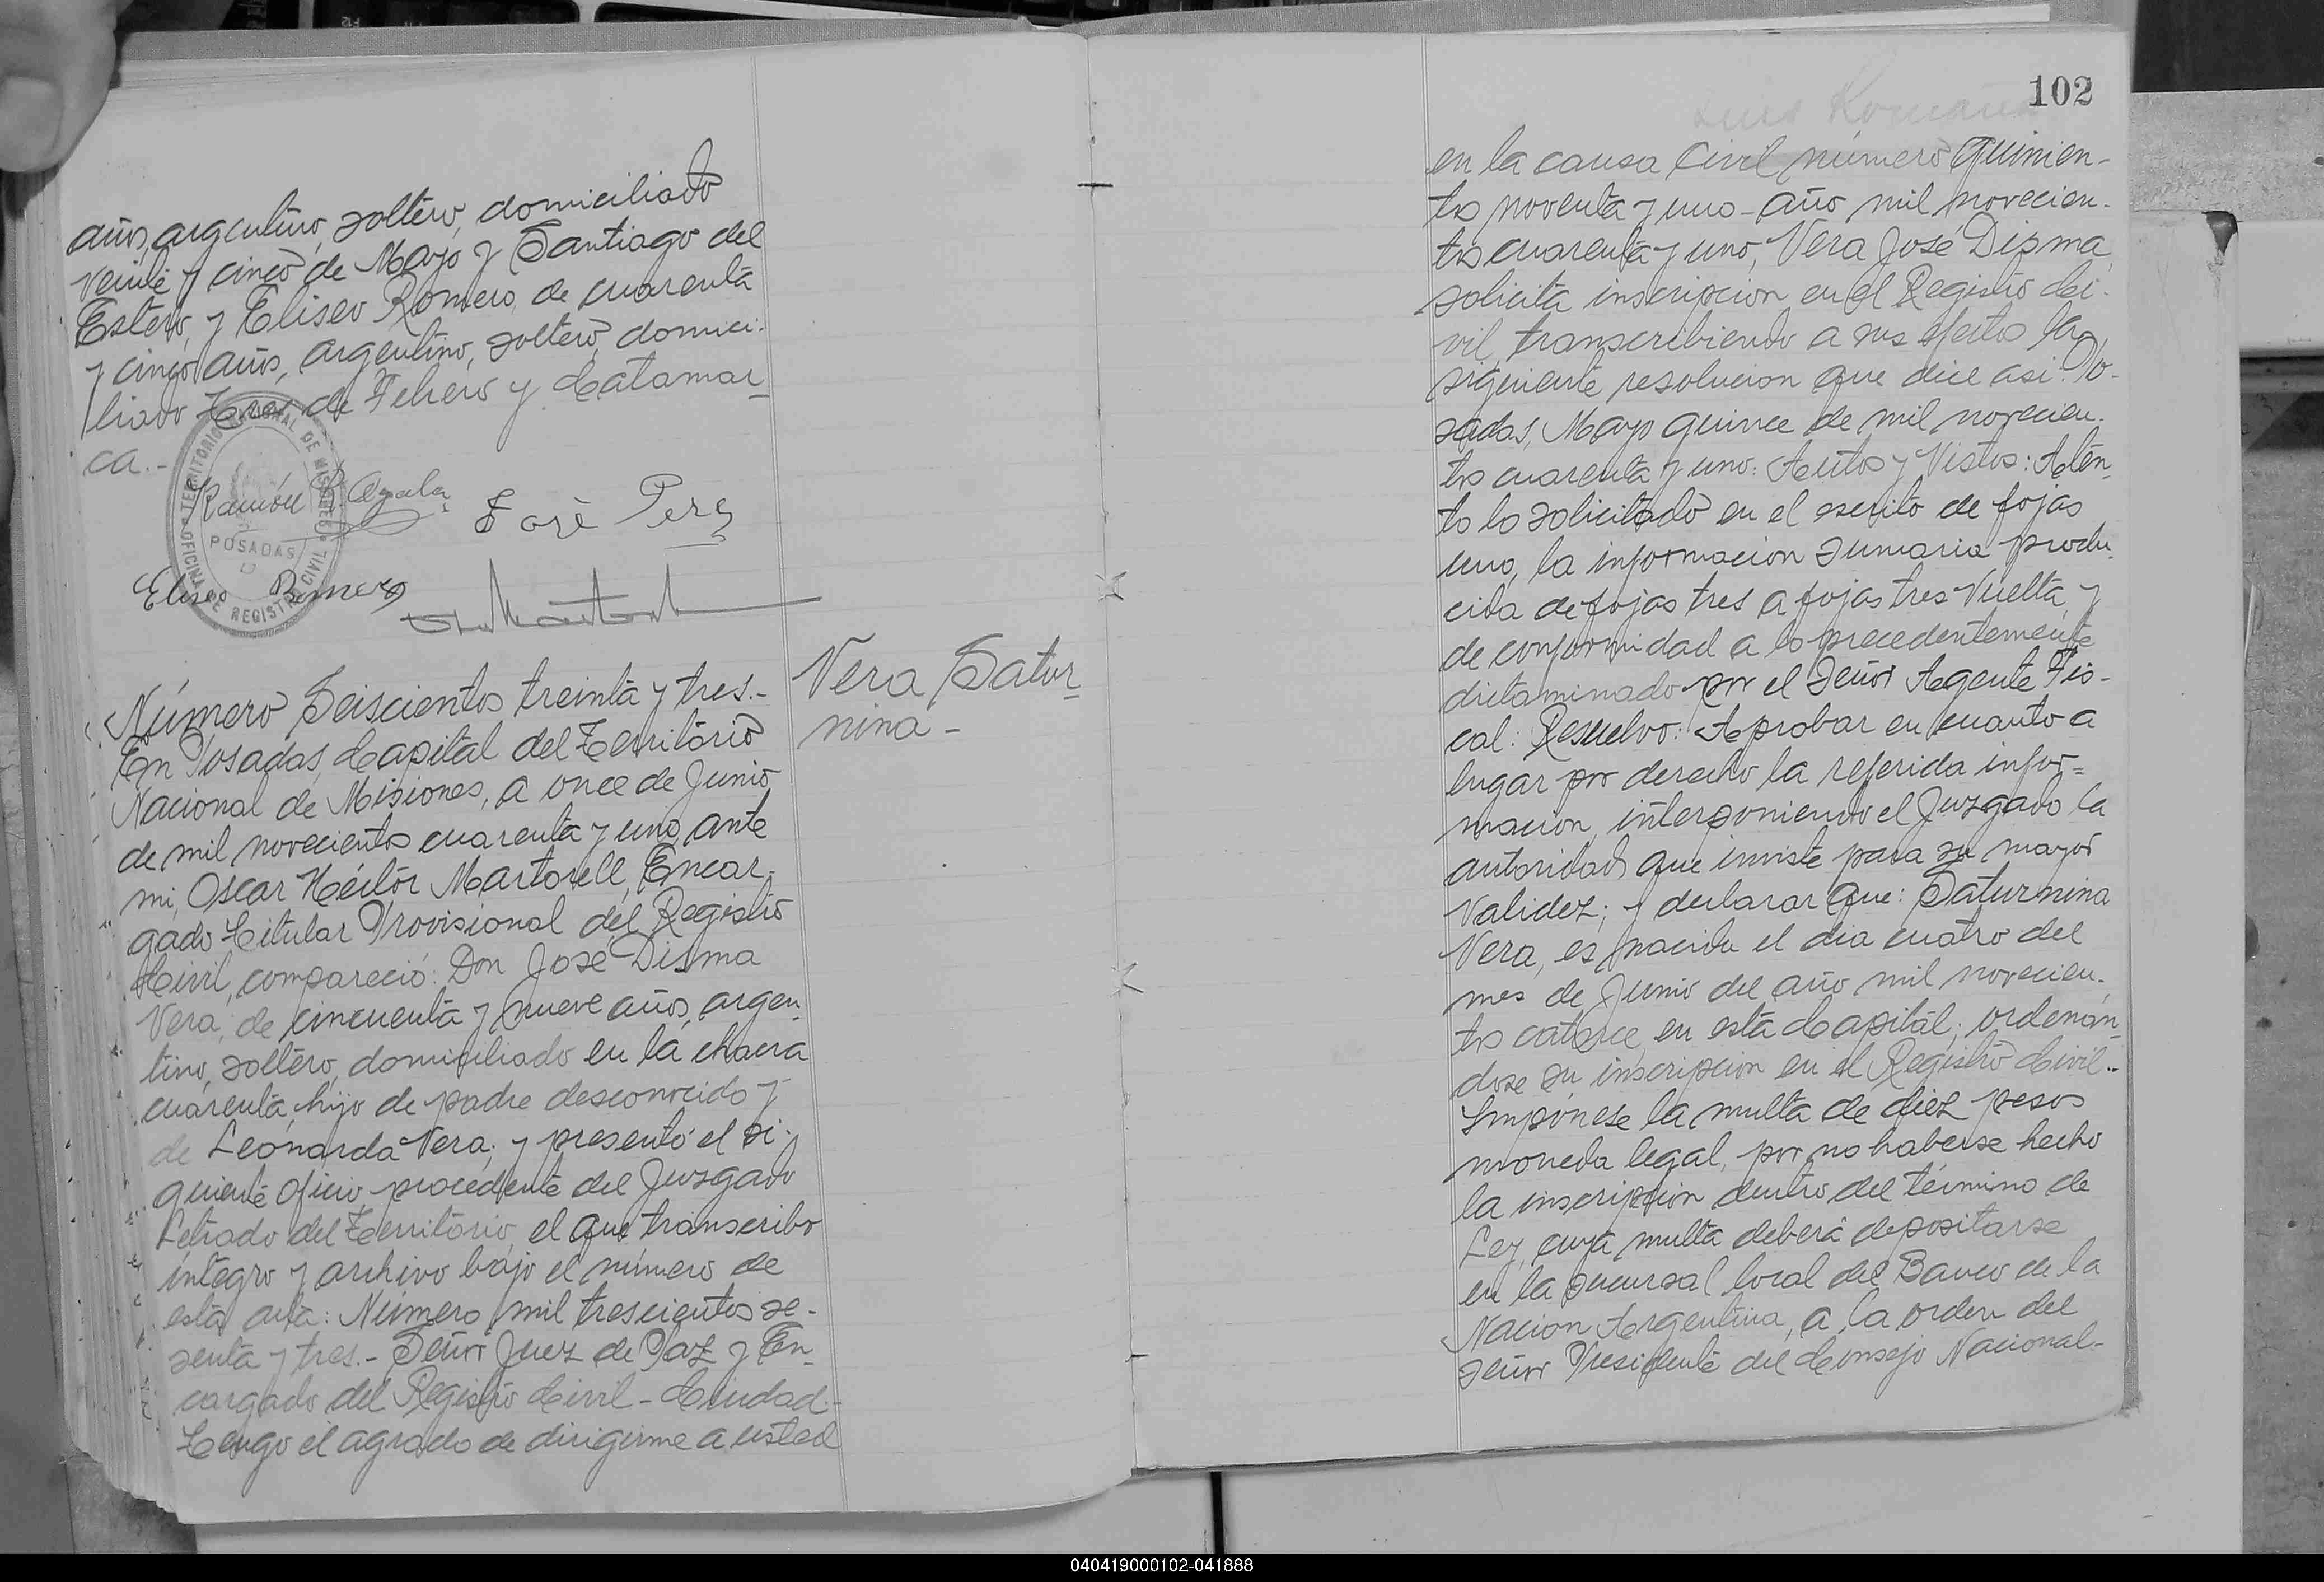 años, argentino, soltero, domiciliado
veinte y cinco de Mayo y Santiago del
Estero, y Eliseo Romero, de cuarenta
y cinco años, argentino, soltero, domici-
liado Tres de Febrero y Catamar
ca.-
Ramón Ayala
José Perez
Eliseo Romero
TERRITORIO NACIONAL DE MISIONES
POSADAS
OFICINA DE REGISTRO CIVIL
Número Seiscientos treinta y tres.-
En Posadas, Capital del Territorio
Nacional de Misiones, a once de Junio
de mil novecientos cuarenta y uno, ante
mi, Oscar Héctor Martorell, Encar-
gado Titular Provisional del Registro
Civil, compareció: Don José Disma
Vera, de cincuenta y nueve años, argen
tino, soltero, domiciliado en la chacra
cuarenta, hijo de padre desconocido y
de Leonarda Vera; y presentó el si-
guiente oficio procedente del Juzgado
Letrado del Territorio, el que transcribo
íntegro y archivo bajo el número de
esta acta: Número mil trescientos se-
senta y tres.- Señor Juez de Paz y En
cargado del Registro Civil - Ciudad.-
Tengo el agrado de dirigirme a usted
Vera Satur
nina -
102
en la causa Civil número quinien-
tos noventa y uno - año mil novecien-
tos cuarenta y uno, Vera José Disma
solicita inscripcion en el Registro Ci-
vil, transcribiendo a sus efectos la
siguiente resolucion que dice asi: Po-
sadas, Mayo quince de mil novecien-
tos cuarenta y uno: Autos y Vistos: Aten
to lo solicitado en el escrito de fojas
uno, la informacion sumaria produ
cida de fojas tres a fojas tres vuelta, y
de conformidad a lo precedentemente
dictaminado por el Señor Agente Fis-
cal: Resuelvo: Aprobar en cuanto a
lugar por derecho la referida infor=
macion, interponiendo el Juzgado la
autoridad que inviste para su mayor
validez; y declarar que: Saturnina
Vera, es nacida el dia cuatro del
mes de Junio del año mil novecien-
tos catorce, en esta Capital; ordenán
dose su inscripcion en el Registro Civil.-
Impónese la multa de diez pesos
moneda legal, por no haberse hecho
la inscripcion dentro del término de
Ley, cuya multa deberá depositarse
en la sucursal local del Banco de la
Nacion Argentina, a la orden del
señor Presidente del Consejo Nacional-
040419000102-041888